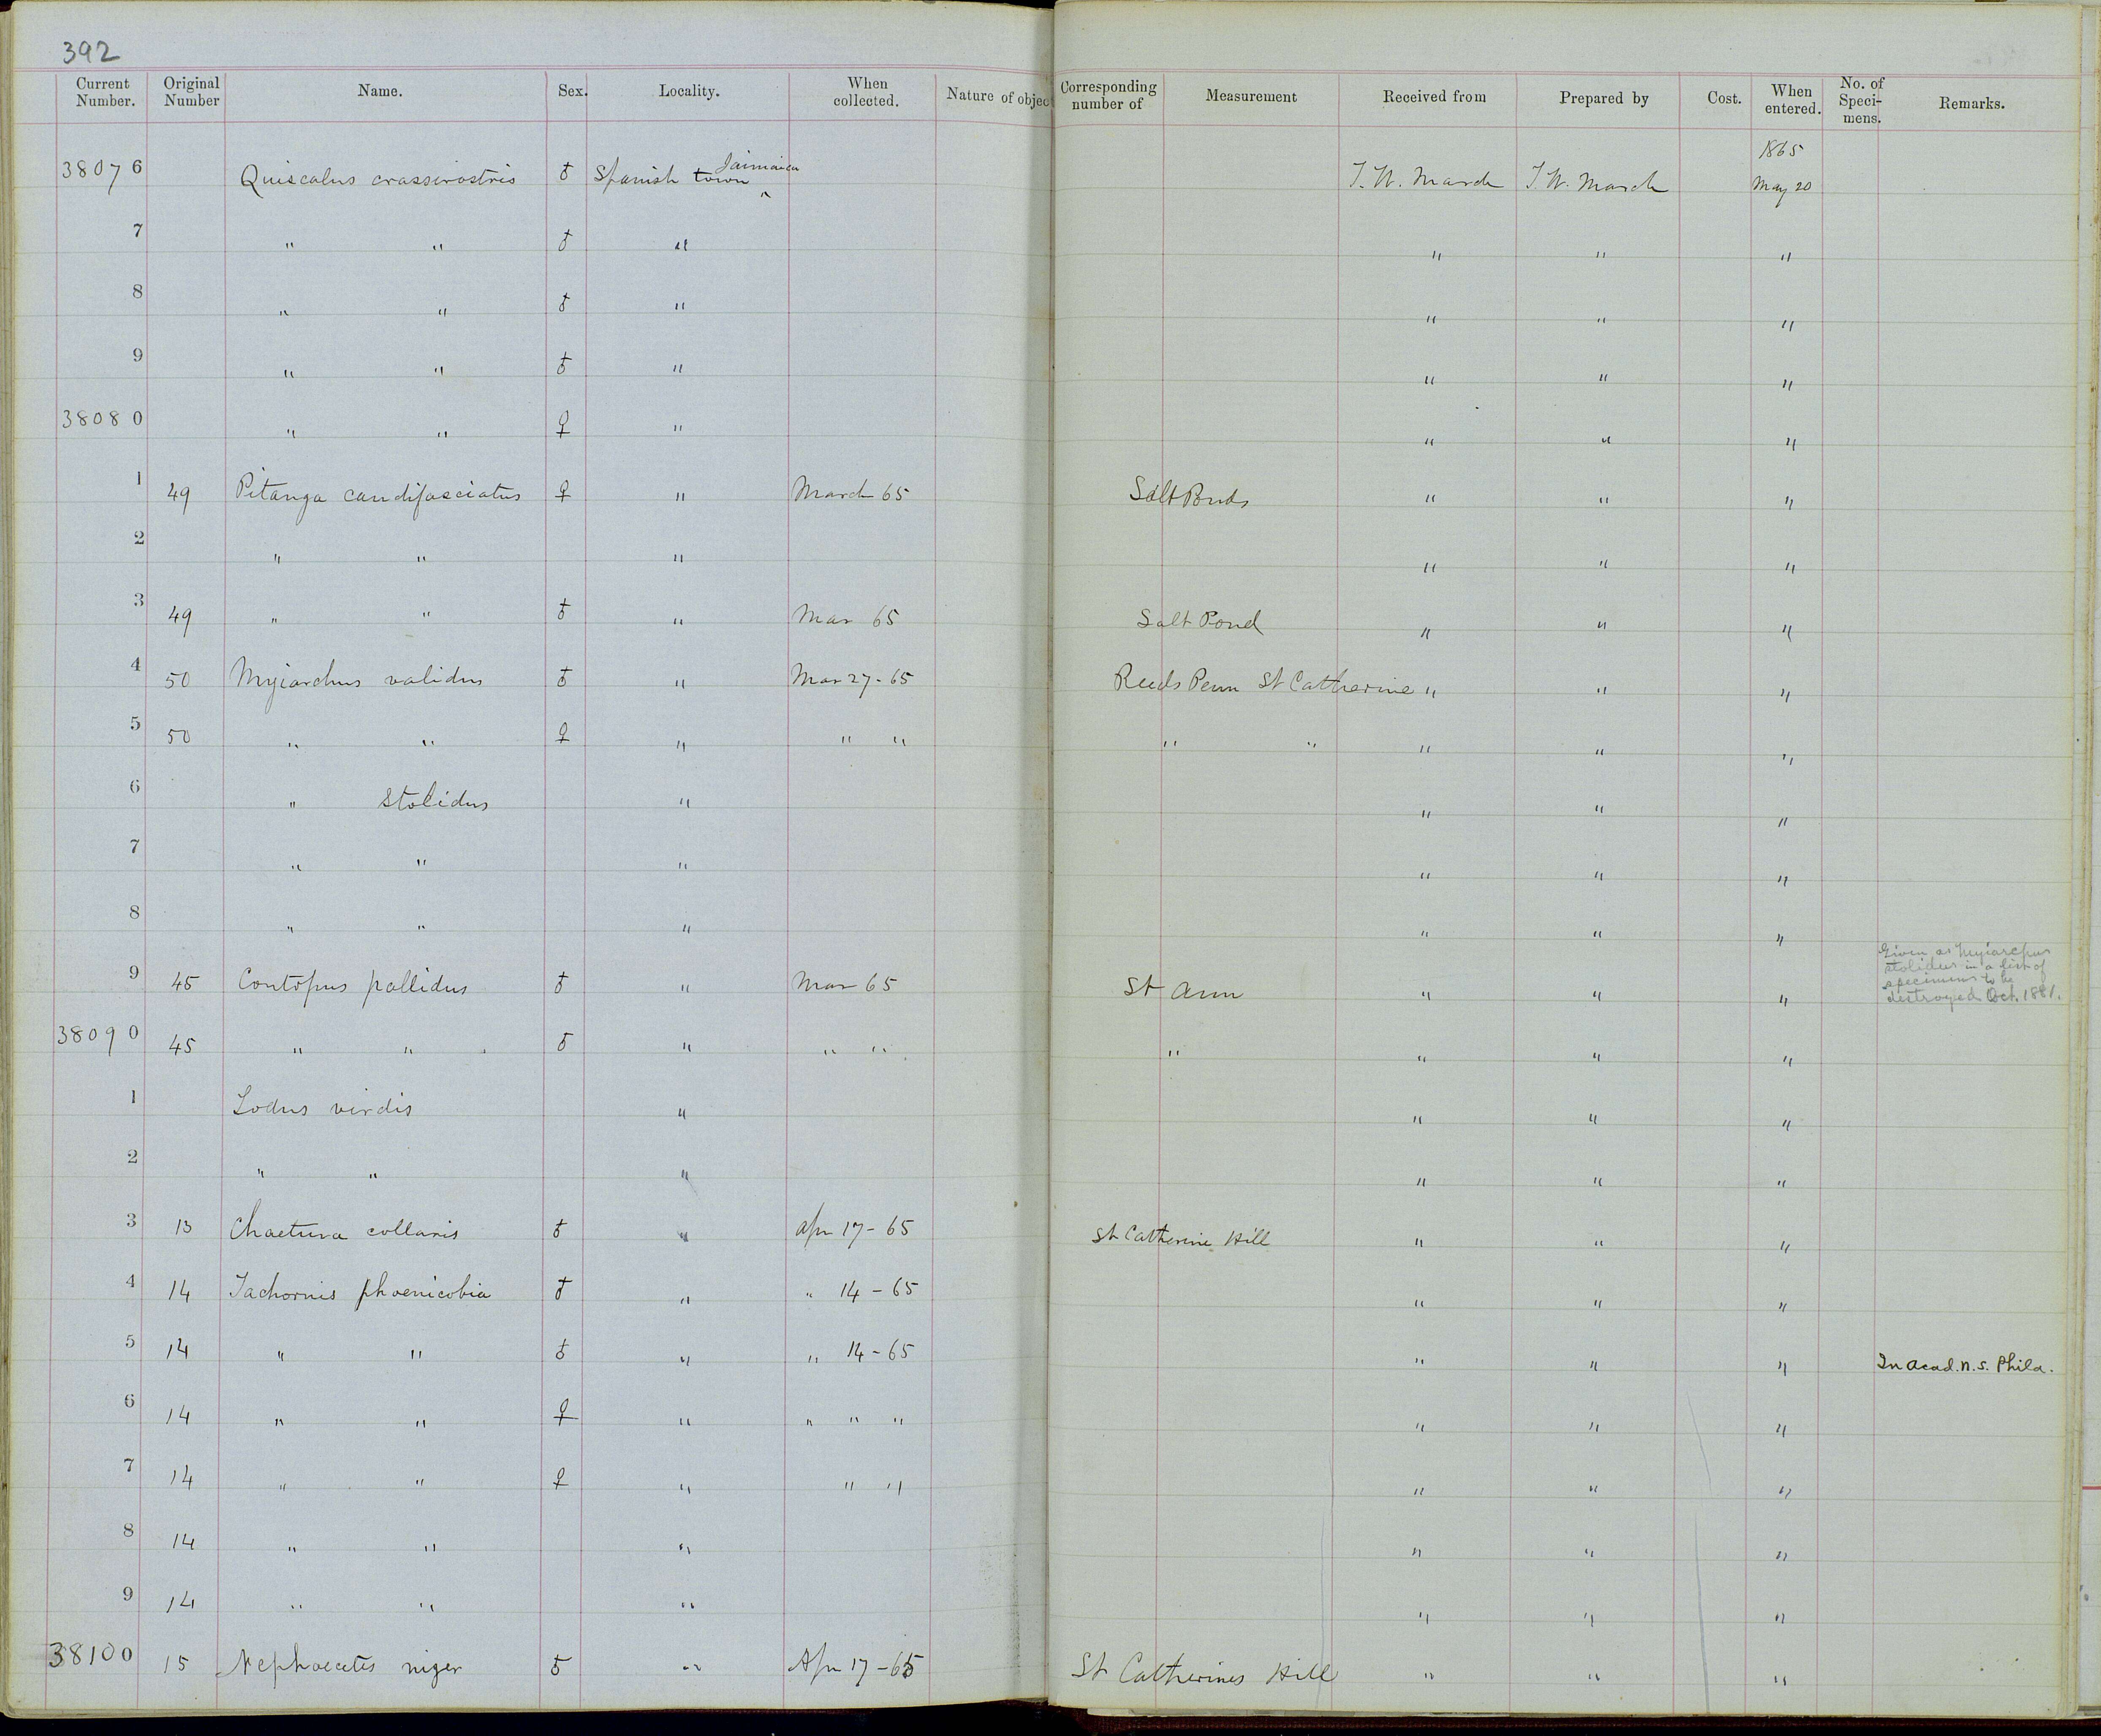 392
Current Number. Original Number Name. Sex. Locality. When collected. Nature of objec Corresponding number of Measurement Received from Prepared by Cost. When entered. No. of Speci-mens. Remarks.
38076 Quiscalus crassirostris ♂ Spanish town Jaimaica ^ T. W. March T. W. March 1865 May 20
7 " " ♂ " " " "
8 " " ♂ " " " "
9 " " ♂ " " " "
38080 " " ♀ " " " "
1 49 Pitanga caudifasciatus ♀ " March 65 Salt Ponds " " "
2 " " " " " "
3 49 " " ♂ " Mar 65 Salt Pond " " "
4 50 Myiarchus validus ♂ " Mar 27-65 Reeds Penn St Catherine " " "
5 50 " " ♀ " " " " " " " "
6 " stolidus " " " "
7 " " " " " "
8 " " " " " "
9 45 Contopus pallidus ♂ " Mar 65 St Ann " " " Given as Myiarchus stolidus in a list of specimens to be destroyed Oct. 1881.
38090 45 " " ♂ " " " " " " "
1 Todus virdis " " " "
2 " " " " " "
3 13 Chaetura collaris ♂ " Apr 17-65 St Catherine Hill " " "
4 14 Tachornis phoenicobia ♂ " " 14-65 " " "
5 14 " " ♂ " " 14-65 " " " In Acad. N. S. Phila.
6 14 " " ♀ " " " " " " "
7 14 " " ♀ " " " " " "
8 14 " " " " " "
9 14 " " " " " "
38100 15 Nephoecetes niger ♂ " Apr 17-65 St Catherines Hill " " "